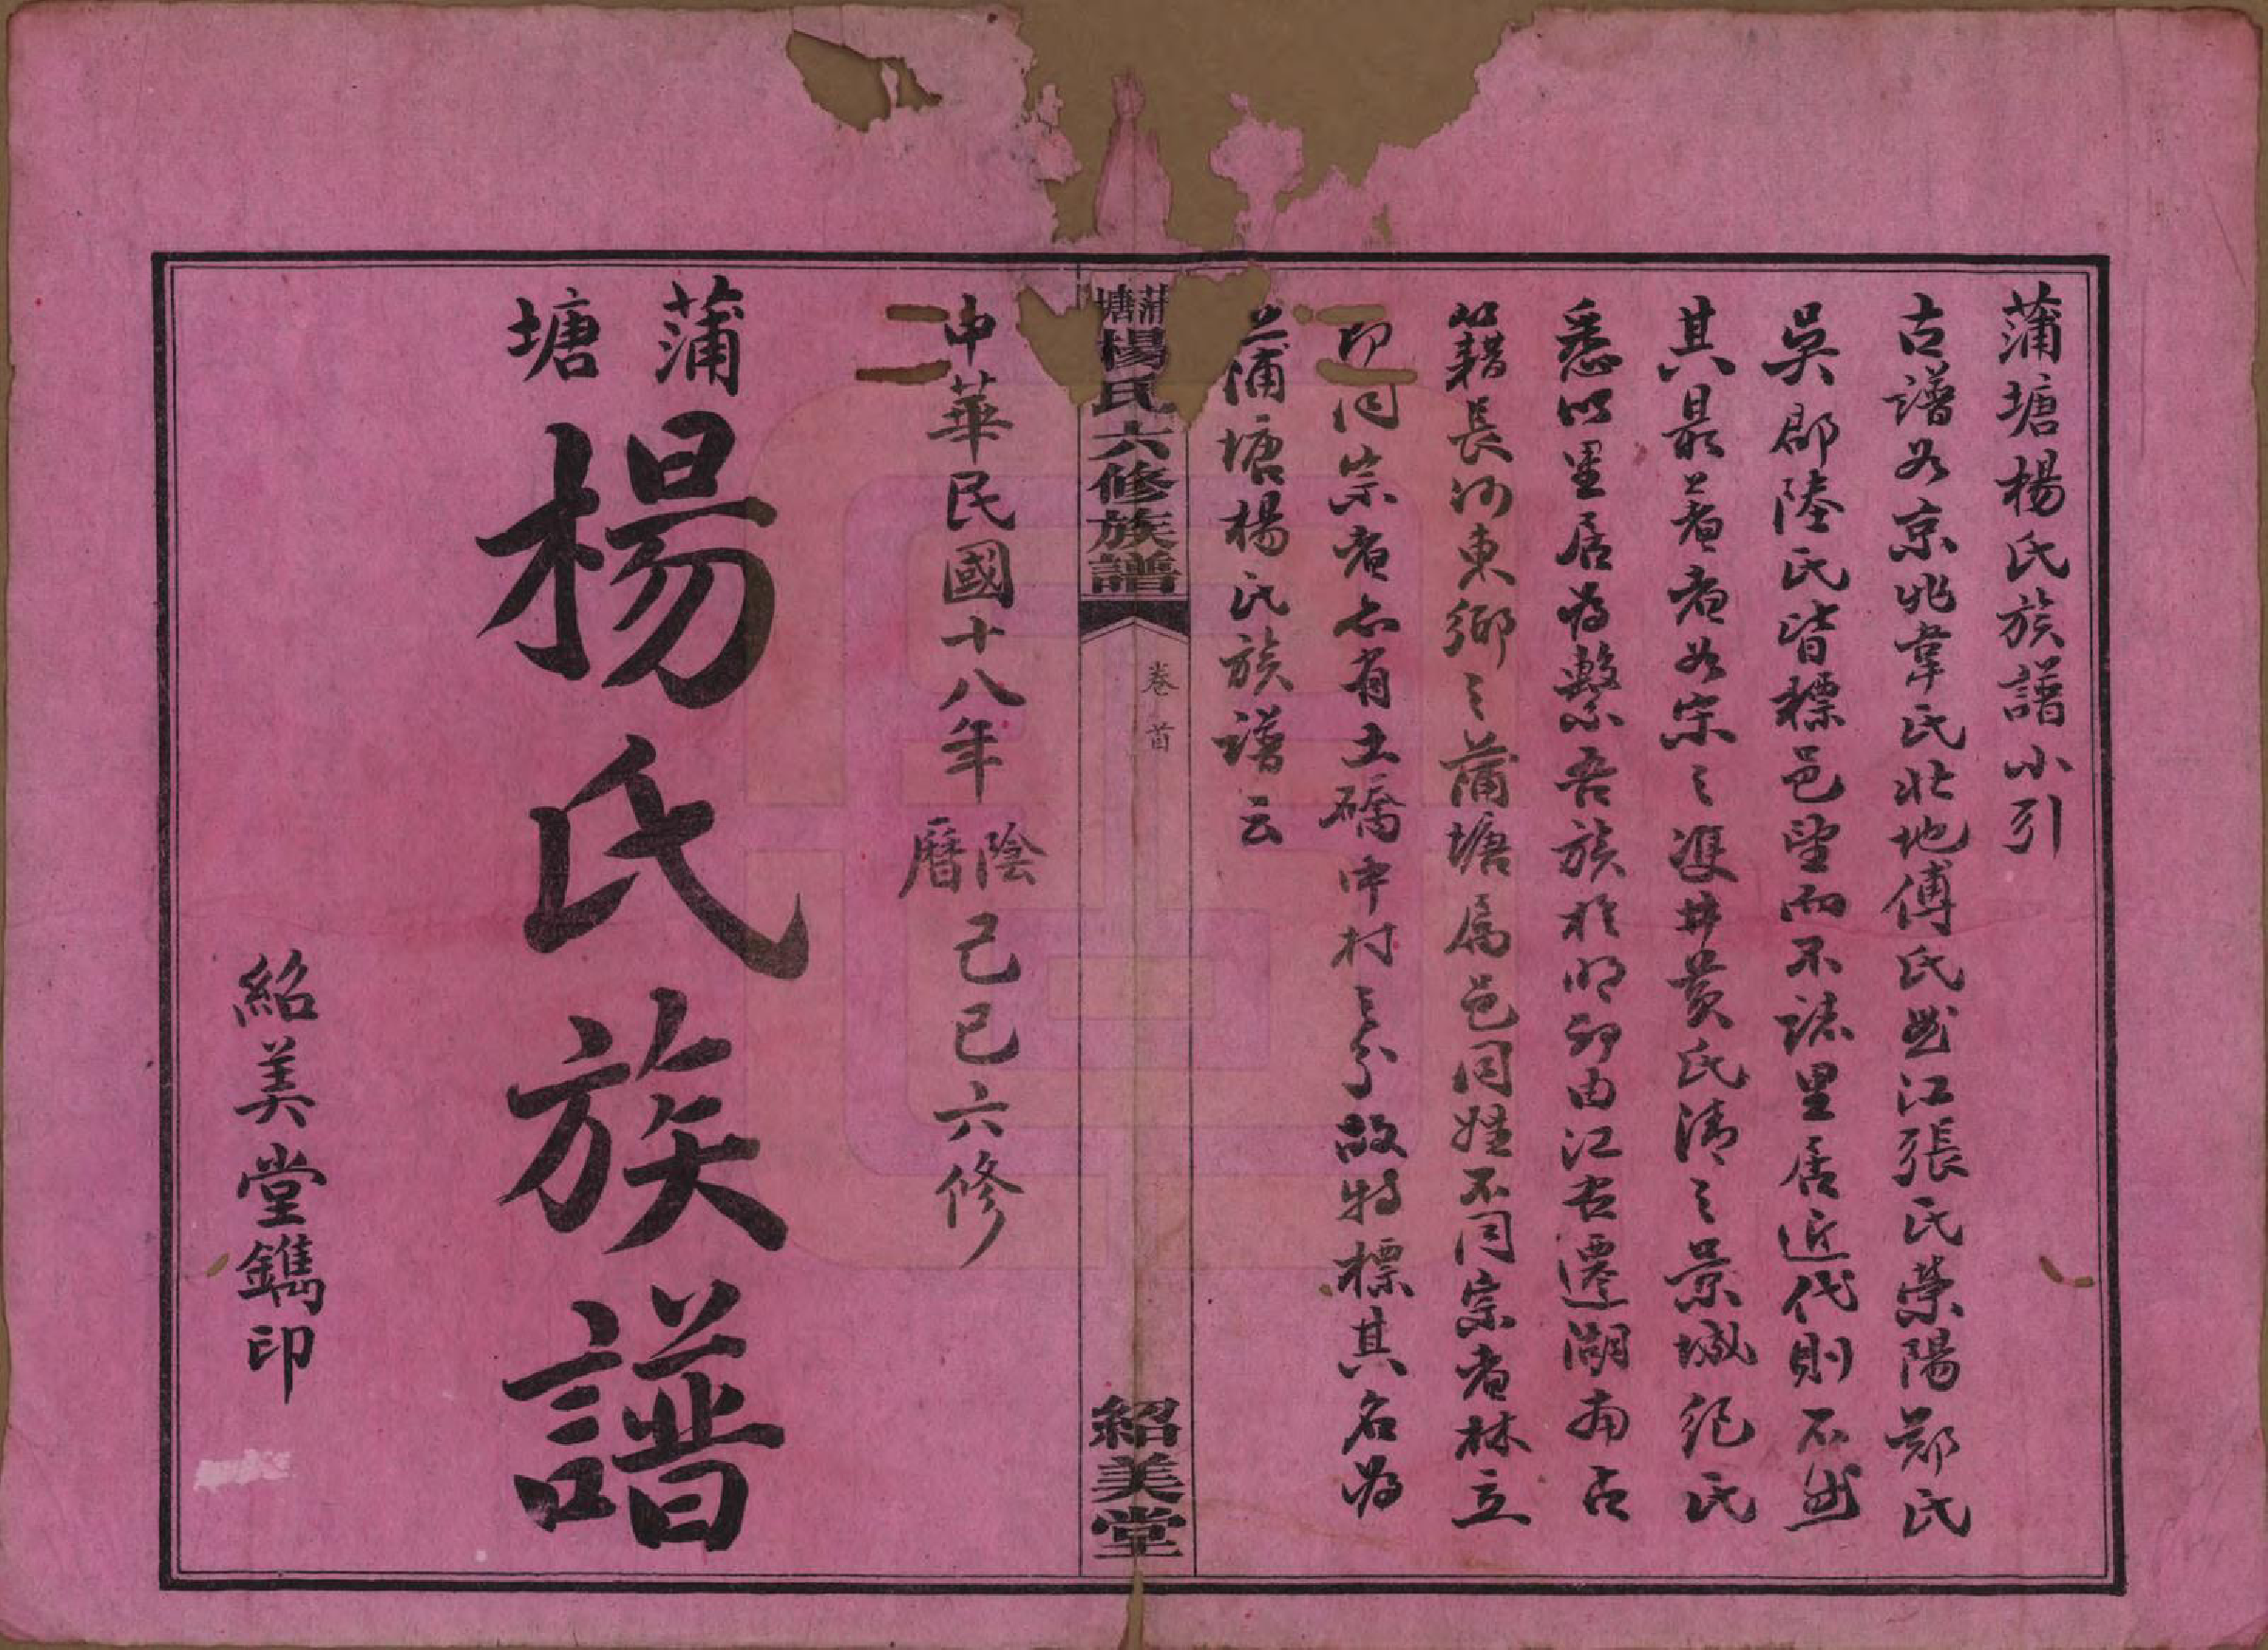 蒲塘楊氏族譜小引
古譜如京兆韋氏北地傅氏曲江張氏滎陽鄭氏
吳郡陸氏皆標邑望而不誌里居近代則不然
其最著者如宋之雙井黃氏清之景城紀氏
悉以里居為繫吾族於明初由江右遷湖南占
籍長沙東鄉之蒲塘屬邑同姓不同宗者林立
即同宗者亦有土礄中村之分故特標其名為
蒲塘楊氏族譜云
蒲塘楊氏六修族譜
卷首
紹美堂
中華民國十八年陰曆己巳六修
蒲塘楊氏族譜
紹美堂鐫印